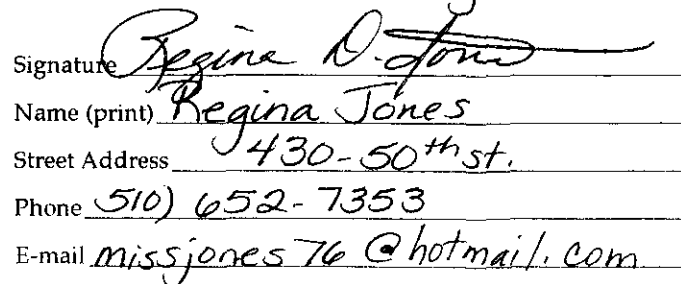 Signature Regina D. Jones
Name (print) Regina Jones
Street Address 430-50th st.
Phone 510) 652-7353
E-mail missjones76@hotmail.com